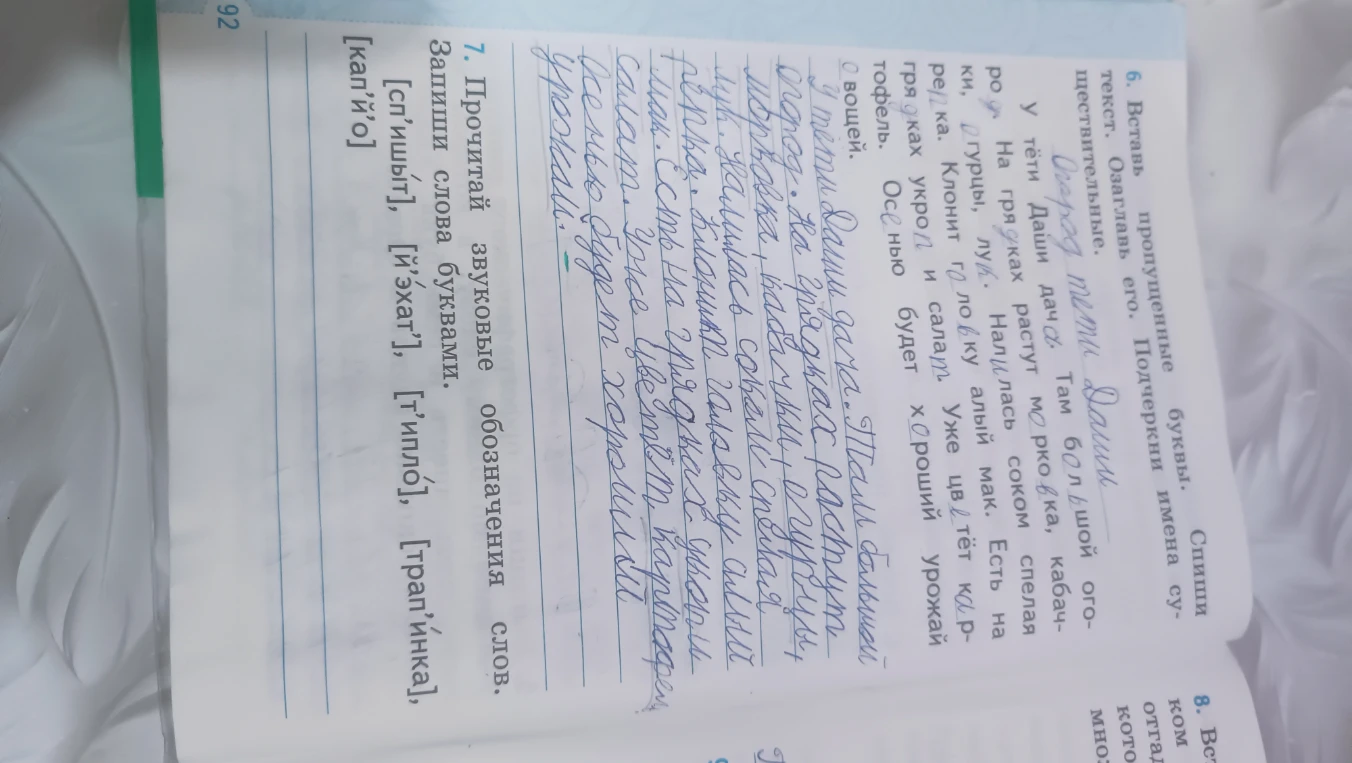 6. Вставь пропущенные буквы. Спиши
текст. Озаглавь его. Подчеркни имена су-
ществительные.
Огород тёти Даши
У тёти Даши дача. Там большой ого-
род. На грядках растут морковка, кабач-
ки, огурцы, лук. Налилась соком спелая
репка. Клонит головку алый мак. Есть на
грядках укроп и салат. Уже цветёт кар-
тофель. Осенью будет хороший урожай
овощей.
У тёти Даши дача. Там большой
огород. На грядках растут
морковка, кабачки, огурцы,
лук. Налилась соком спелая
репка. Клонит головку алый
мак. Есть на грядках укроп
салат. Уже цветёт картофель
Осенью будет хороший
урожай.
7. Прочитай звуковые обозначения слов.
Запиши слова буквами.
[сп’ишы́т], [й’э́хат’], [т’ипло́], [трап’и́нка],
[кап’й’о]
92
8. Вст
ком
отгад
кото
мно